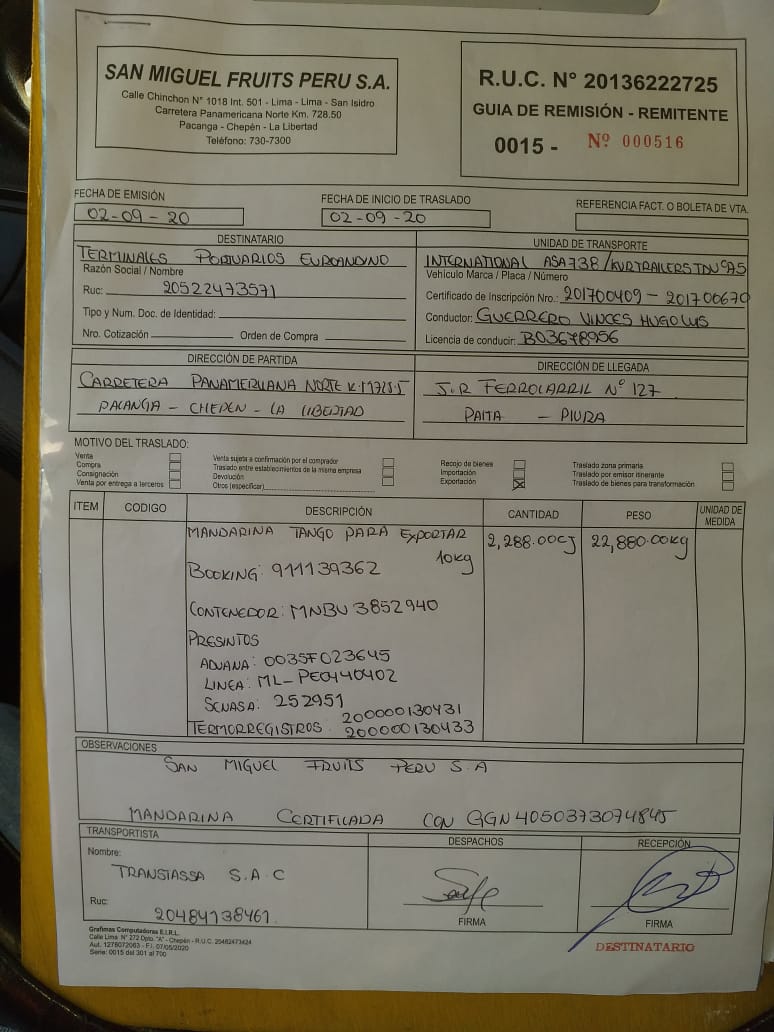 SAN MIGUEL FRUITS PERU S.A.
Calle Chinchon N° 1018 Int. 501 - Lima - Lima - San Isidro
Carretera Panamericana Norte Km. 728.50
Pacanga - Chepén - La Libertad
Teléfono: 730-7300
R.U.C. N° 20136222725
GUIA DE REMISIÓN - REMITENTE
0015 - Nº 000516
FECHA DE EMISIÓN
02-09-20
FECHA DE INICIO DE TRASLADO
02-09-20
REFERENCIA FACT. O BOLETA DE VTA.
DESTINATARIO
TERMINALES PORTUARIOS EUROANDINO
Razón Social / Nombre
Ruc: 20522473571
Tipo y Num. Doc. de Identidad:
Nro. Cotización Orden de Compra
UNIDAD DE TRANSPORTE
INTERNATIONAL ASA738/KURTRAILERS
Vehículo Marca / Placa / Número
Certificado de Inscripción Nro.: 201700409 - 201700670
Conductor: GUERRERO VINCES HUGO LUIS
Licencia de conducir: B03678956
DIRECCIÓN DE PARTIDA
CARRETERA PANAMERICANA NORTE
PACANGA - CHEPEN - LA LIBERTAD
DIRECCIÓN DE LLEGADA
J.R FERROCARRIL N° 127
PAITA - PIURA
MOTIVO DEL TRASLADO:
Venta
Compra
Consignación
Venta por entrega a terceros
Venta sujeta a confirmación por el comprador
Traslado entre establecimientos de la misma empresa
Devolución
Otros (especificar)
Recojo de bienes
Importación
Exportación X
Traslado zona primaria
Traslado por emisor itinerante
Traslado de bienes para transformación
ITEM CODIGO DESCRIPCIÓN CANTIDAD PESO UNIDAD DE MEDIDA
MANDARINA TANGO PARA EXPORTAR 2,288.00CJ 22,880.00kg
10kg
BOOKING: 911139362
CONTENEDOR: MNBU 3852940
PRESINTOS
ADUANA: 0035F023645
LINEA: ML-PE0440402
SENASA: 252951
TERMORREGISTROS: 200000130431
200000130433
OBSERVACIONES
SAN MIGUEL FRUITS PERU S.A
MANDARINA CERTIFICADA CON GGN 4050373074845
TRANSPORTISTA
Nombre:
TRANSIASSA S.A.C
Ruc:
20484138461
DESPACHOS
FIRMA
RECEPCIÓN
FIRMA
Grafimas Computadoras E.I.R.L.
Calle Lima N° 272 Dpto. "A" - Chepén - R.U.C. 20482473424
Aut. 1278072063 - F.I. 07/05/2020
Serie: 0015 del 301 al 700
DESTINATARIO